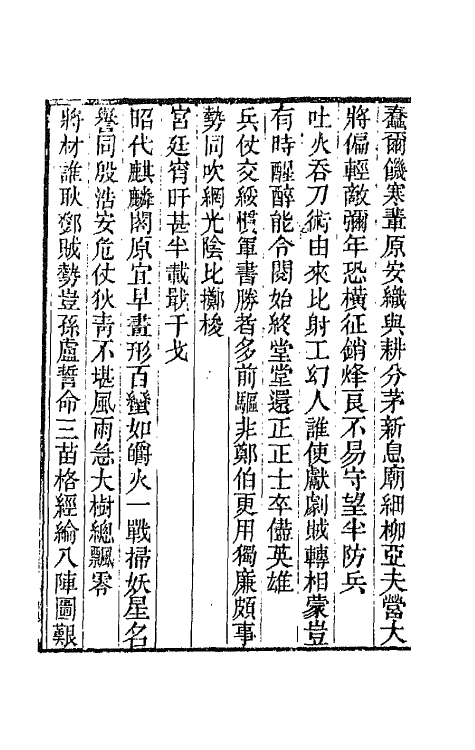 蠢爾饑寒輩原安織與耕分茅新息廟細柳亞夫營大
將偏輕敵彌年恐橫征銷烽良不易守望半防兵
吐火吞刀術由來比射工幻人誰使獻劇賊轉相蒙豈
有時醒醉能令閱始終堂堂還正正士卒儘英雄
兵仗交綏慣軍書勝者多前驅非鄭伯更用獨廉頗事
勢同吹網光陰比擲梭
宮廷宵旰甚半載戢干戈
昭代麒麟閣原宜早畫形百蠻如爝火一戰掃妖星名
譽同殷浩安危仗狄青不堪風雨急大樹總飄零
將材誰耿鄧賊勢豈孫盧誓命三苗格經綸八陣圖艱